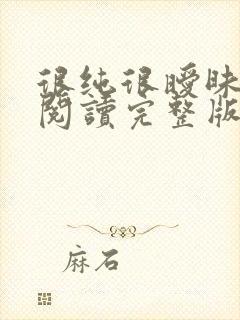 很纯很曖昧
閱讀完整版
麻石